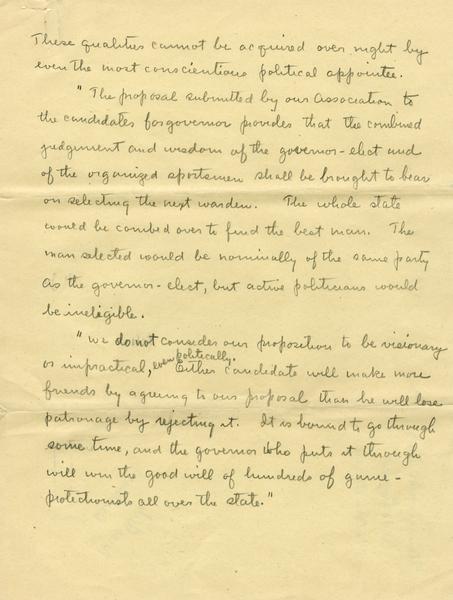 These qualities cannot be acquired over night by
even the most conscientious political appointee.
"The proposal submitted by our Association to
the candidates for governor provides that the combined
judgement and wisdom of the governor-elect and
of the organized sportsmen shall be brought to bear
on selecting the next warden. The whole state
would be combed over to find the best man. The
man selected would be nominally of the same party
as the governor-elect, but active politicians would
be ineligible.
"We do not consider our proposition to be visionary
or impractical, even politically. Either candidate will make more
friends by agreeing to our proposal than he will lose
patronage by rejecting it. It is bound to go through
some time, and the governor who puts it through
will win the good will of hundreds of game-
protectionists all over the state."